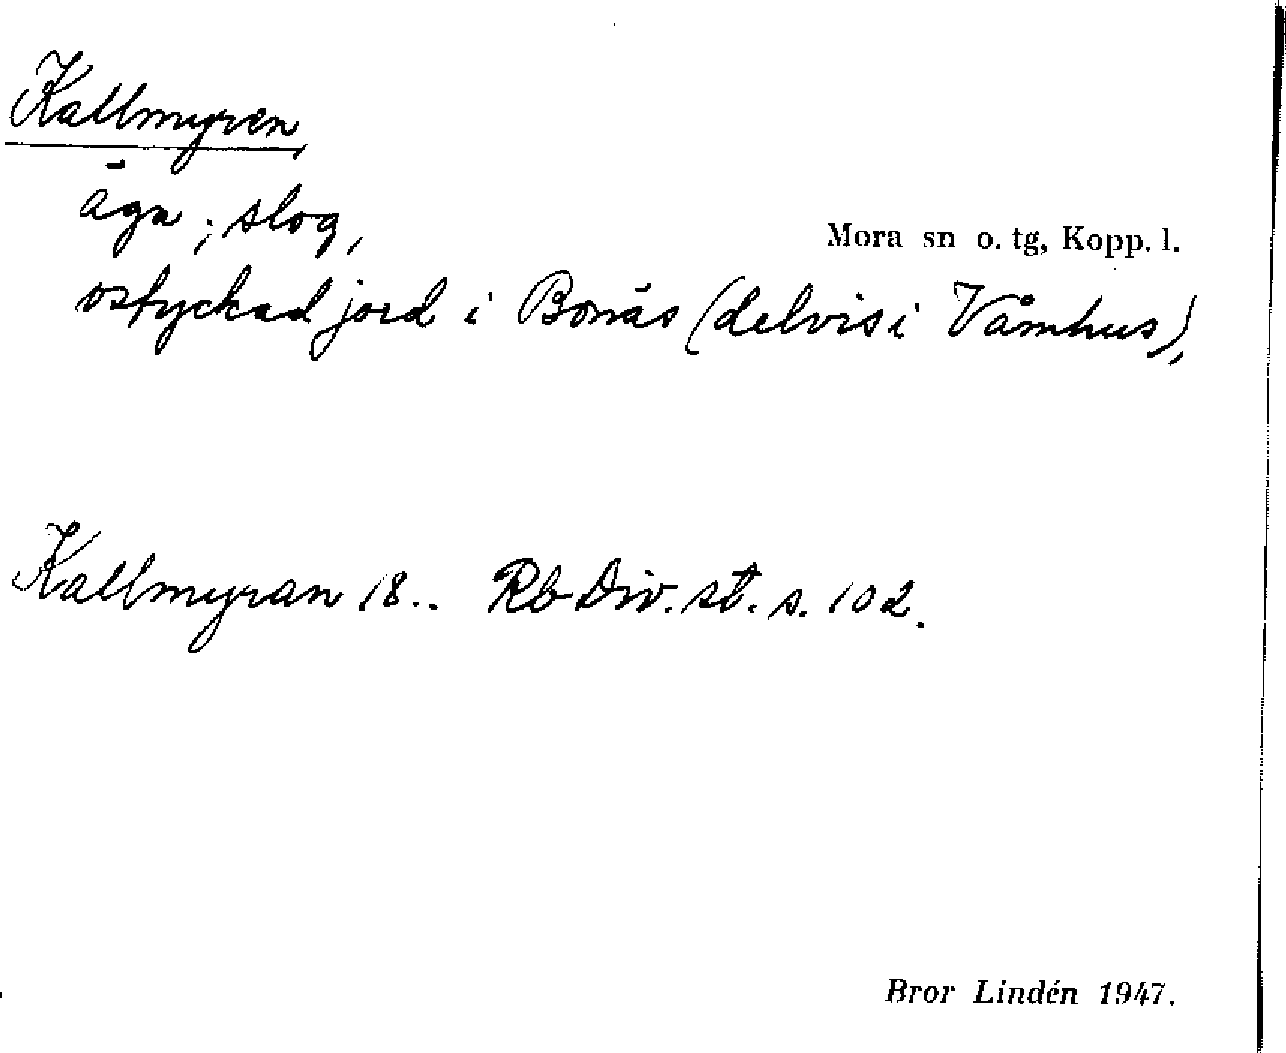 Kallmyren,
ägn; slog,
Mora sn o. tg, Kopp. l.
ostyckad jord i Bonäs (delvis i Våmhus),
Kallmyran 18.. Rb Div. st. s. 102.
Bror Lindén 1947.